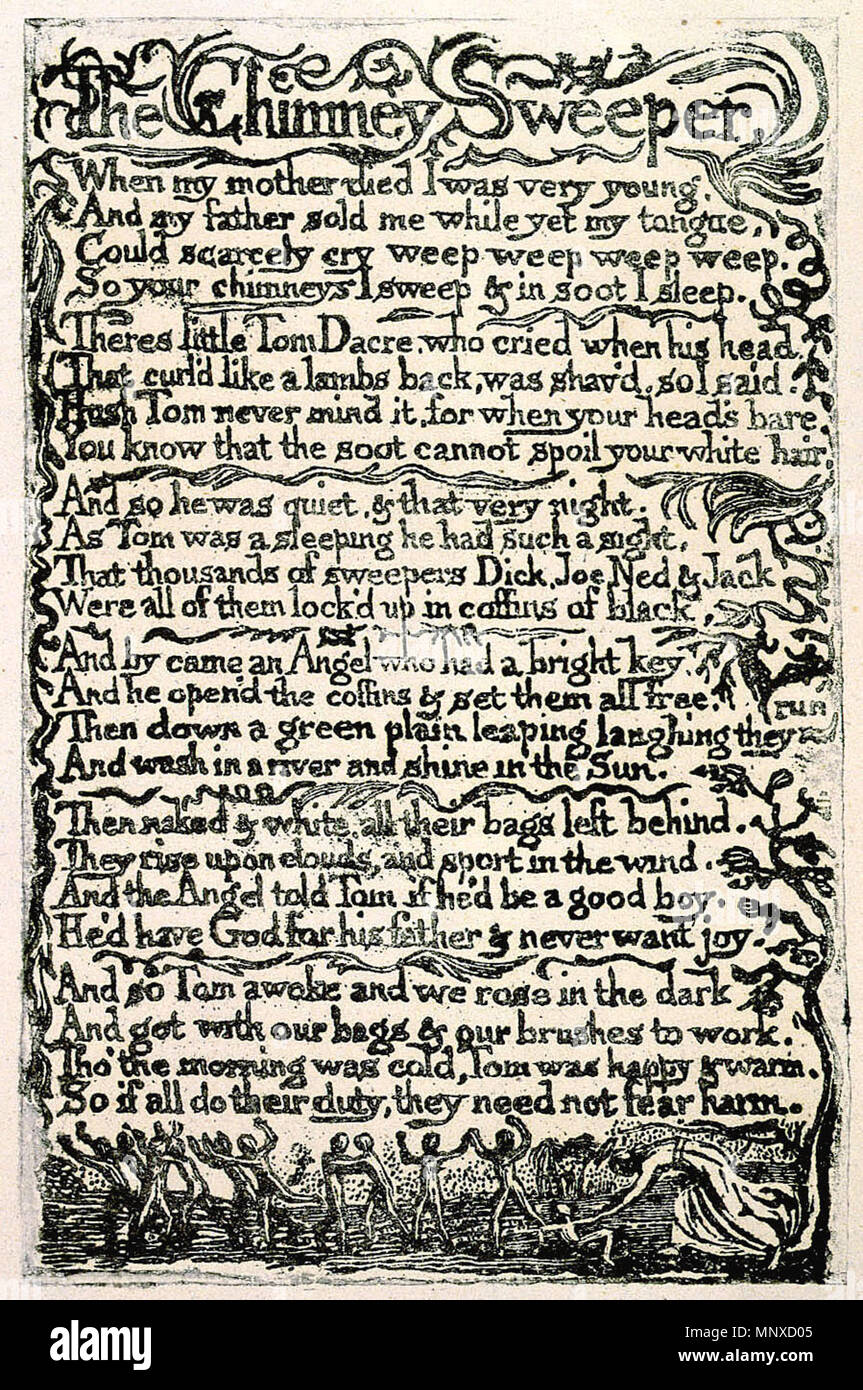 The Chimney Sweeper,
When my mother died I was very young,
And my father sold me while yet my tongue,
Could scarcely cry weep weep weep weep.
So your chimneys I sweep & in soot I sleep.
Theres little Tom Dacre, who cried when his head
That curl'd like a lambs back, was shav'd, so I said.
Hush Tom never mind it, for when your head's bare,
You know that the soot cannot spoil your white hair.
And so he was quiet, & that very night.
As Tom was a sleeping he had such a sight,
That thousands of sweepers Dick, Joe, Ned & Jack
Were all of them lock'd up in coffins of black,
And by came an Angel who had a bright key
And he open'd the coffins & set them all free.
Then down a green plain leaping laughing they run
And wash in a river and shine in the Sun.
Then naked & white, all their bags left behind.
They rise upon clouds, and sport in the wind.
And the Angel told Tom if he'd be a good boy,
He'd have God for his father & never want joy.
And so Tom awoke and we rose in the dark
And got with our bags & our brushes to work.
Tho' the morning was cold, Tom was happy & warm.
So if all do their duty, they need not fear harm.
alamy
Image ID: MNXD05
www.alamy.com